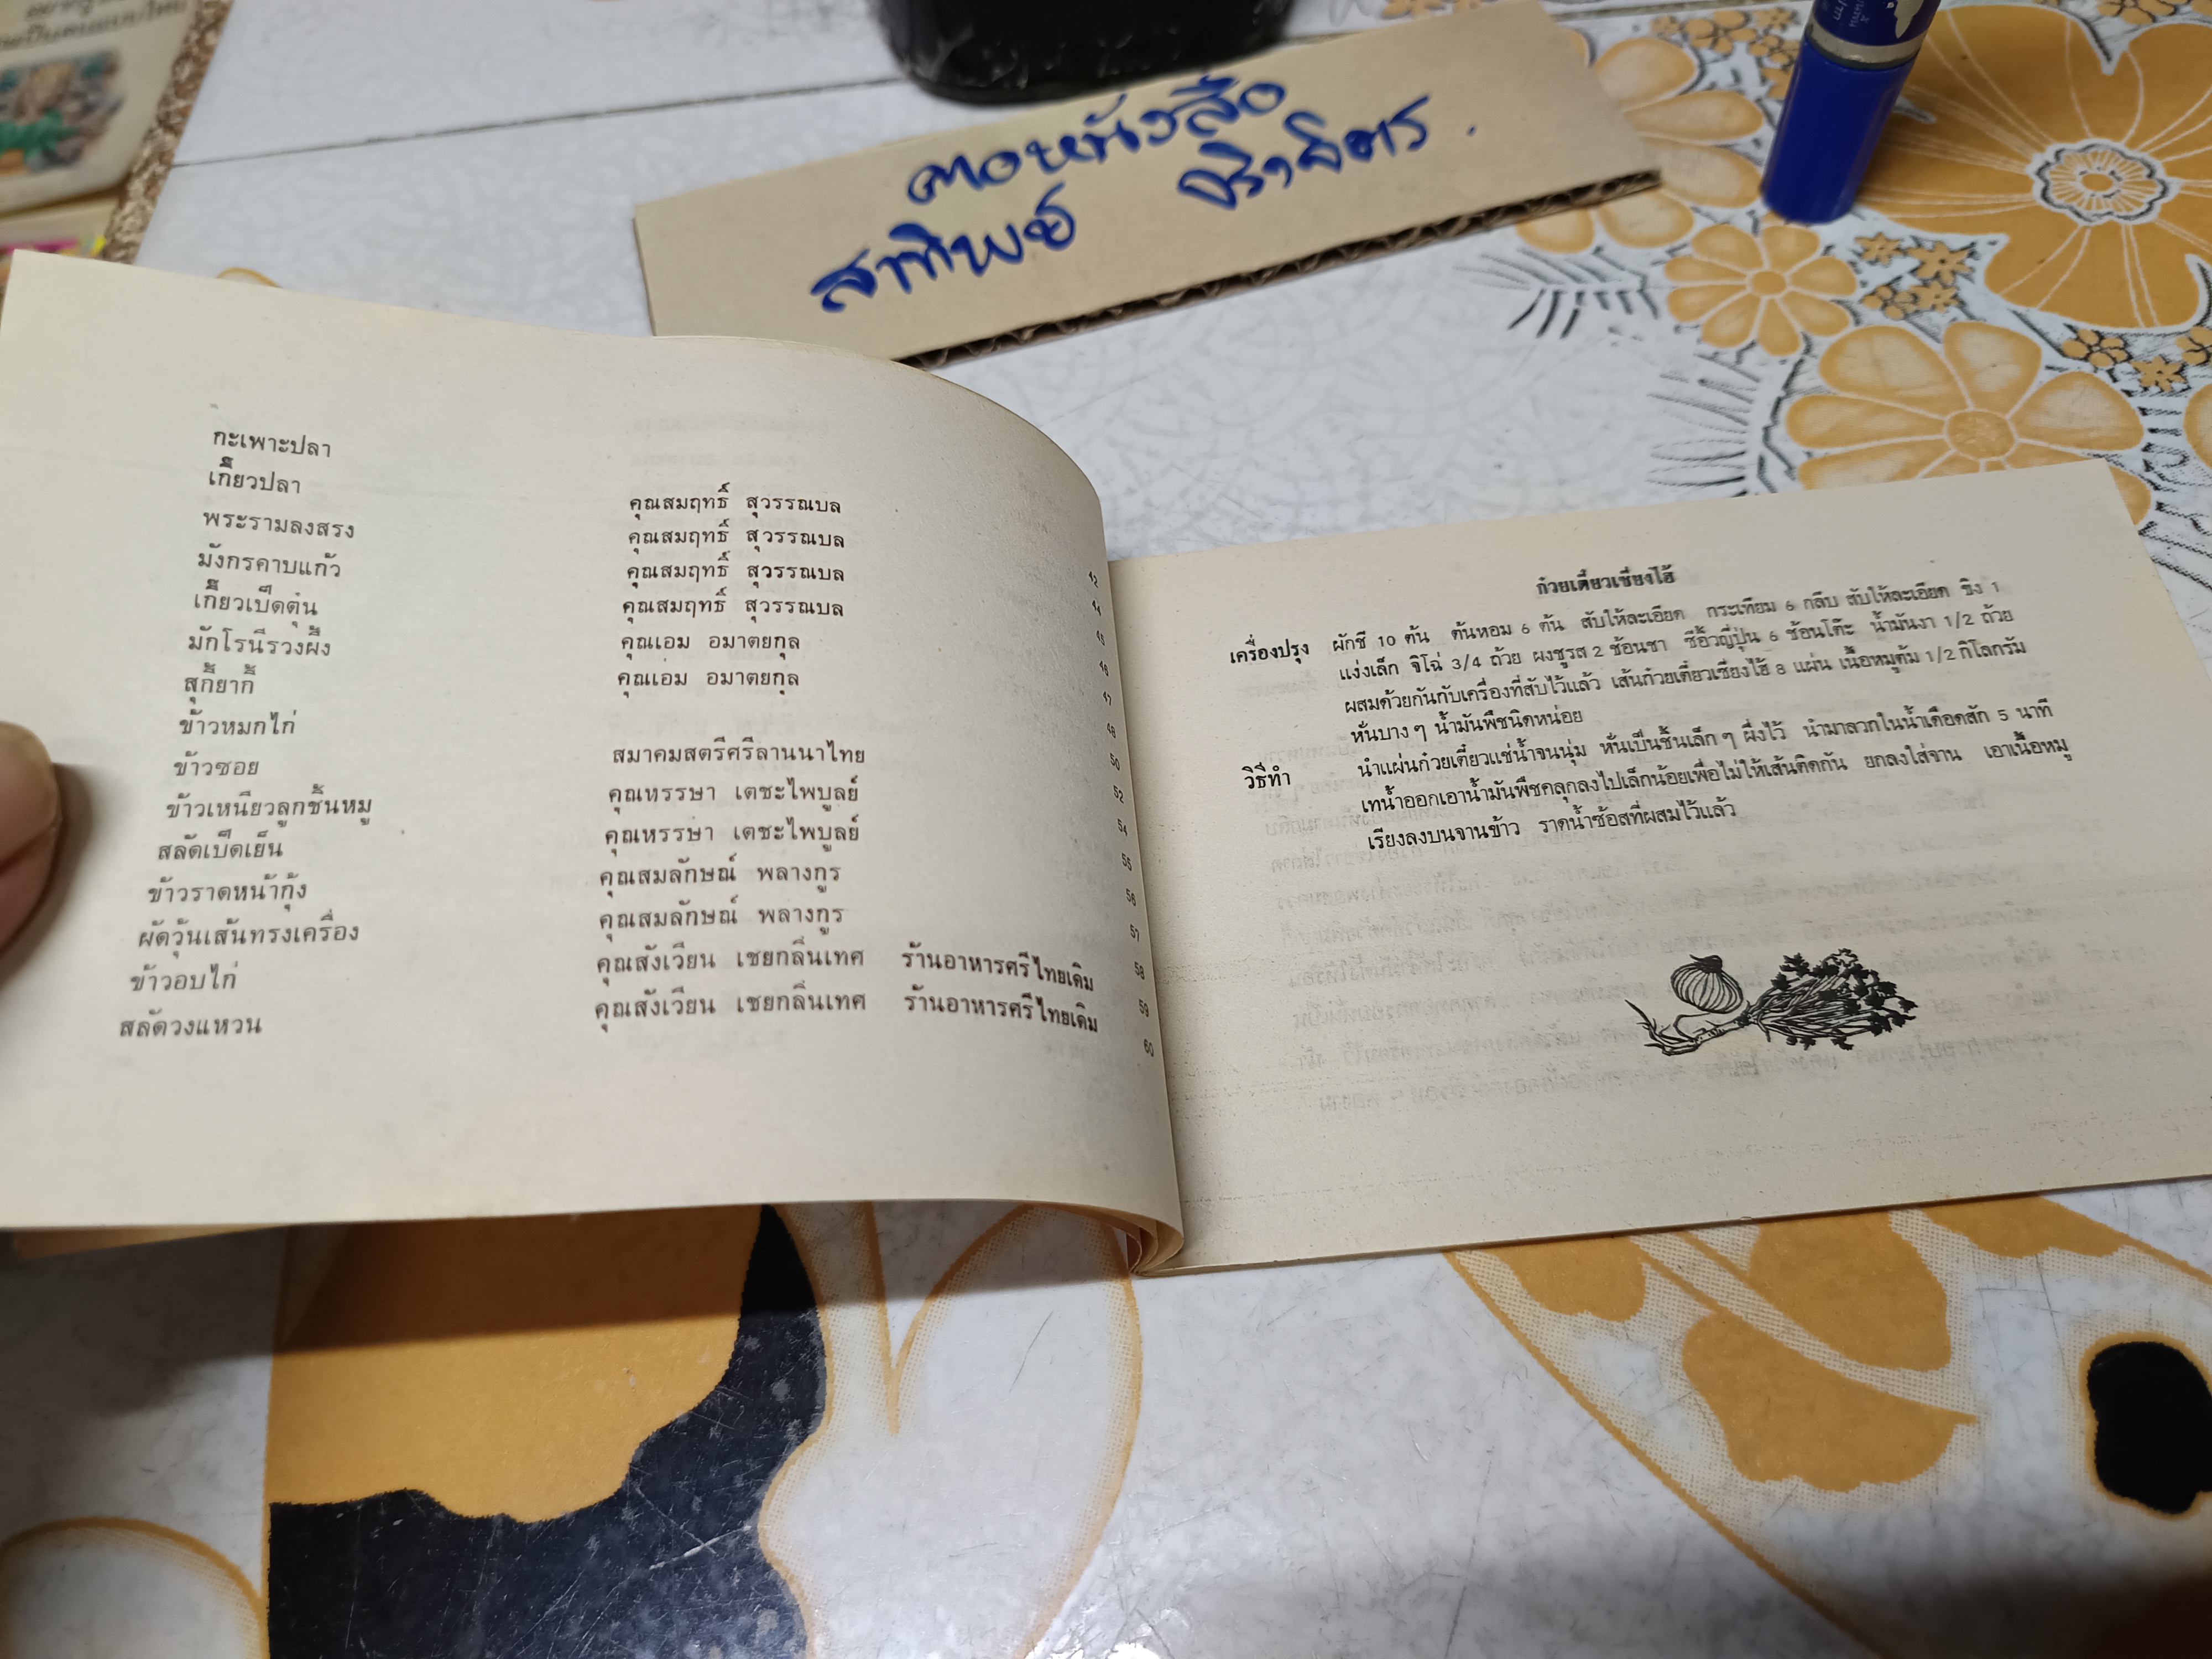 คอหนังสือ
สาทิพย์
กะเพาะปลา
เกี๊ยวปลา คุณสมฤทธิ์ สุวรรณบล 42
พระรามลงสรง คุณสมฤทธิ์ สุวรรณบล 44
มังกรคาบแก้ว คุณสมฤทธิ์ สุวรรณบล 45
เกี๊ยวเป็ดตุ๋น คุณสมฤทธิ์ สุวรรณบล 46
มักโรนีรวงผึ้ง คุณเอม อมาตยกุล 47
สุกี้ยากี้ คุณเอม อมาตยกุล 48
ข้าวหมกไก่ 50
ข้าวซอย สมาคมสตรีศรีลานนาไทย 52
ข้าวเหนียวลูกชิ้นหมู คุณหรรษา เตชะไพบูลย์ 54
สลัดเป็ดเย็น คุณหรรษา เตชะไพบูลย์ 55
ข้าวราดหน้ากุ้ง คุณสมลักษณ์ พลางกูร 56
ผัดวุ้นเส้นทรงเครื่อง คุณสมลักษณ์ พลางกูร 57
ข้าวอบไก่ คุณสังเวียน เชยกลิ่นเทศ ร้านอาหารศรีไทยเดิม 58
สลัดวงแหวน คุณสังเวียน เชยกลิ่นเทศ ร้านอาหารศรีไทยเดิม 59
60
ก๋วยเตี๋ยวเซี่ยงไฮ้
เครื่องปรุง ผักชี 10 ต้น ต้นหอม 6 ต้น สับให้ละเอียด กระเทียม 6 กลีบ สับให้ละเอียด ขิง 1
แง่งเล็ก จิโฉ่ 3/4 ถ้วย ผงชูรส 2 ช้อนชา ซีอิ๊วญี่ปุ่น 6 ช้อนโต๊ะ น้ำมันงา 1/2 ถ้วย
ผสมด้วยกันกับเครื่องที่สับไว้แล้ว เส้นก๋วยเตี๋ยวเซี่ยงไฮ้ 8 แผ่น เนื้อหมูต้ม 1/2 กิโลกรัม
หั่นบาง ๆ น้ำมันพืชนิดหน่อย
วิธีทำ นำแผ่นก๋วยเตี๋ยวแช่น้ำจนนุ่ม หั่นเป็นชิ้นเล็ก ๆ ผึ่งไว้ นำมาลวกในน้ำเดือดสัก 5 นาที
เทน้ำออกเอาน้ำมันพืชคลุกลงไปเล็กน้อยเพื่อไม่ให้เส้นติดกัน ยกลงใส่จาน เอาเนื้อหมู
เรียงลงบนจานข้าว ราดน้ำซ้อสที่ผสมไว้แล้ว